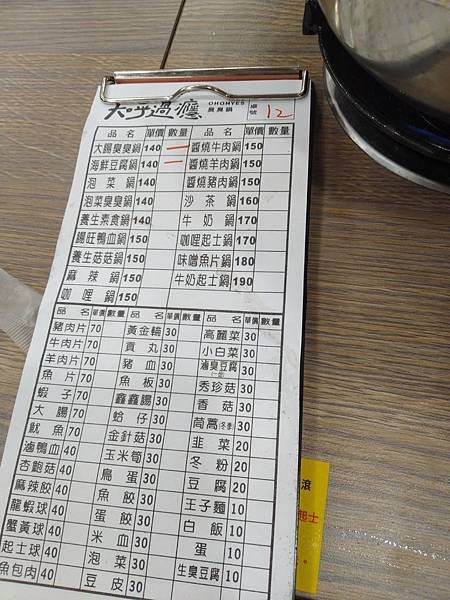 大呼過癮 OHOHYES 臭臭鍋 桌號 12
品名 單價 數量 品名 單價 數量
大腸臭臭鍋 140 一 醬燒牛肉鍋 150
海鮮豆腐鍋 140 一 醬燒羊肉鍋 150
泡菜鍋 140 醬燒豬肉鍋 150
泡菜臭臭鍋 140 沙茶鍋 160
養生素食鍋 140 牛奶鍋 170
腸旺鴨血鍋 150 咖哩起士鍋 170
養生菇菇鍋 150 味噌魚片鍋 180
麻辣鍋 150 牛奶起士鍋 190
咖哩鍋 150
品名 單價 數量 品名 單價 數量 品名 單價 數量
豬肉片 70 黃金輪 30 高麗菜 30
牛肉片 70 貢丸 30 小白菜 30
羊肉片 70 豬血 30 滷臭豆腐 30
魚片 70 魚板 30 秀珍菇 30
蝦子 70 鑫鑫腸 30 香菇 30
大腸 70 蛤仔 30 茼蒿(冬季) 30
魷魚 70 金針菇 30 韭菜 20
滷鴨血 40 玉米筍 30 冬粉 20
杏鮑菇 40 鳥蛋 30 豆腐 20
麻辣餃 40 魚餃 30 王子麵 10
龍蝦球 40 蛋餃 30 白飯 10
蟹黃球 40 米血 30 蛋 10
起士球 40 泡菜 30 生臭豆腐 10
魚包肉 40 豆皮 30
滾
起士